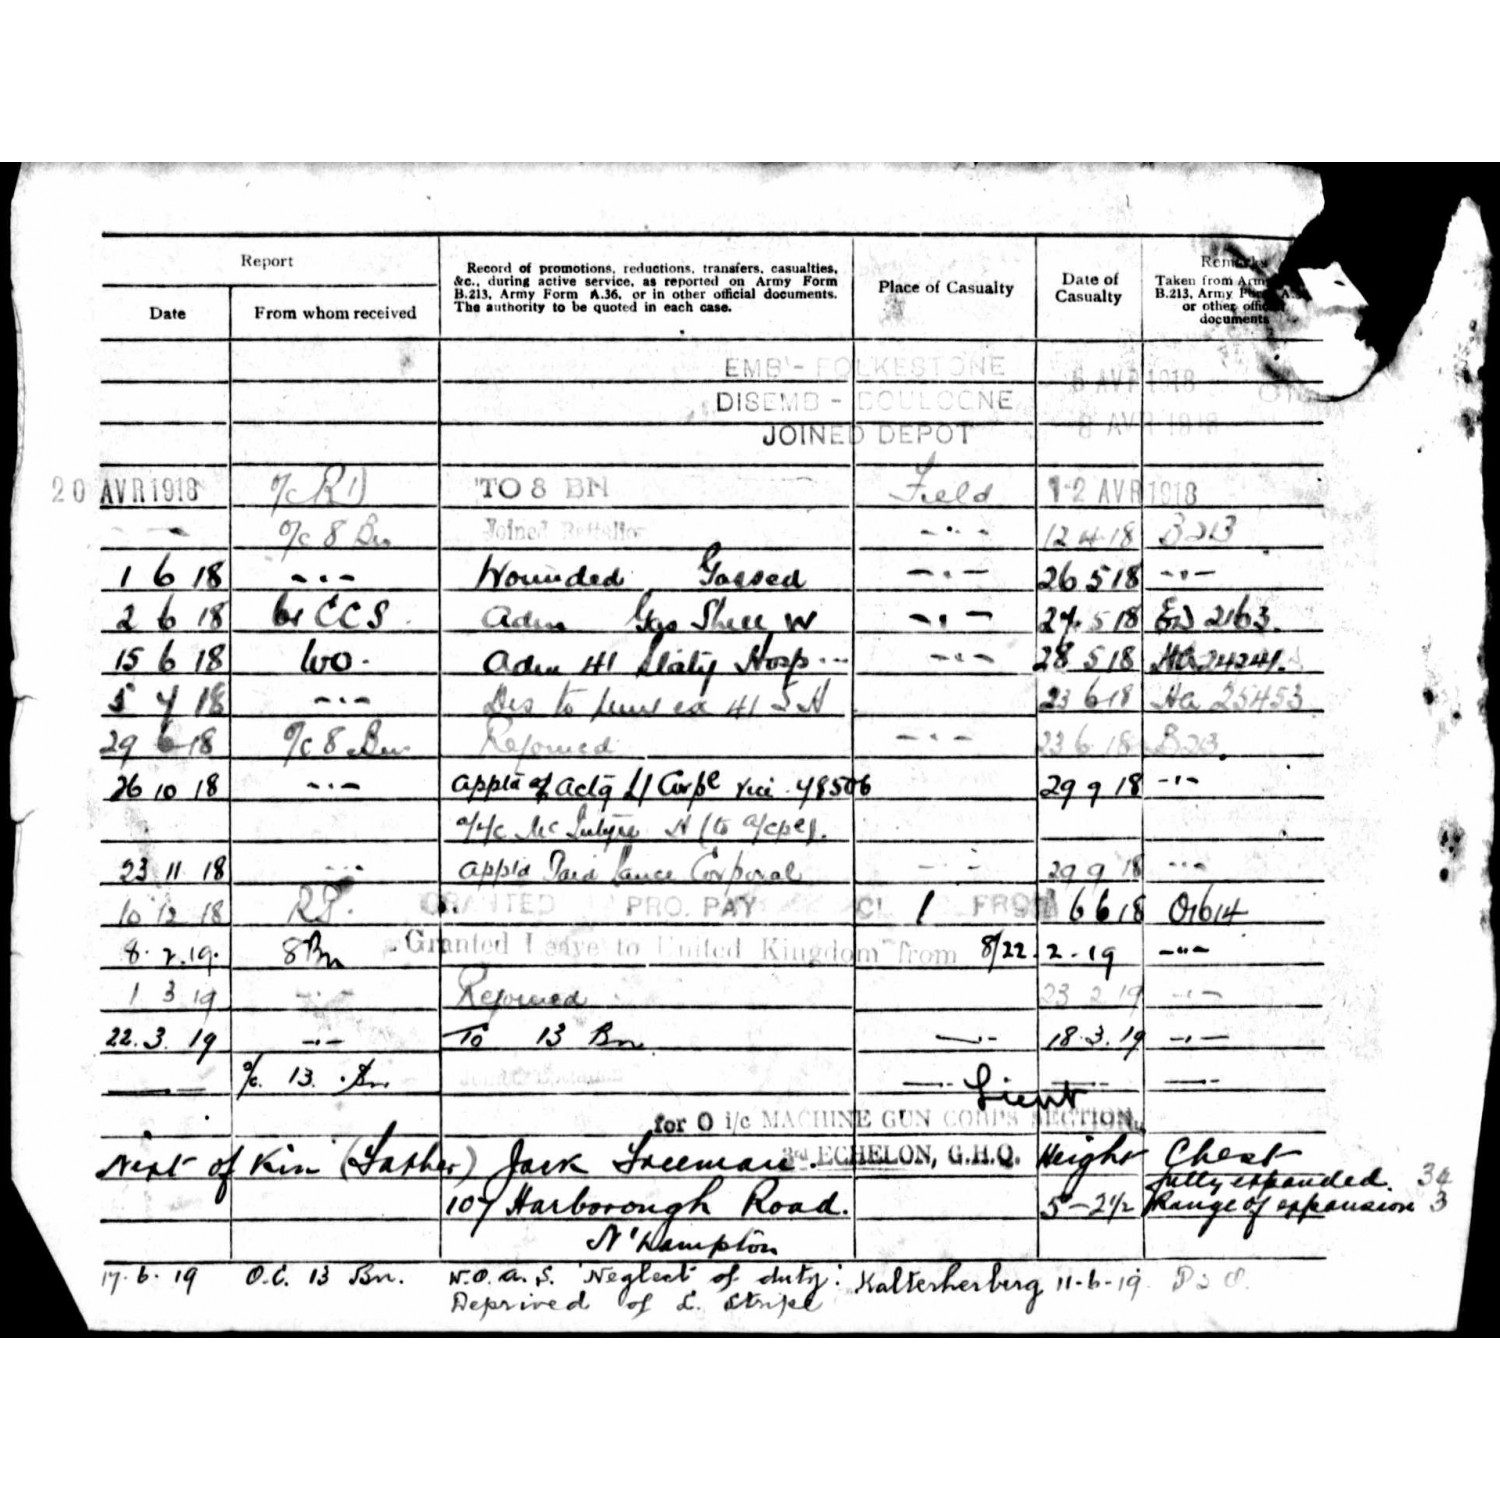 Report
Record of promotions, reductions, transfers, casualties,
&c., during active service, as reported on Army Form
B.213, Army Form A.36, or in other official documents.
The authority to be quoted in each case.
Place of Casualty
Date of
Casualty
Remarks
Taken from Army
B.213, Army
or other official
documents
Date From whom received
EMB - FOLKESTONE 8 AVR 1918
DISEMB - BOULOGNE
JOINED DEPOT 8 AVR 1918
20 AVR 1918 TO 8 BN Field 12 AVR 1918
O/c 8 Bn Joined Battalion -"- 12 4 18 B213
1 6 18 -"- Wounded Gassed -"- 26 5 18 -"-
2 6 18 61 CCS Adm Gas Shell W -"- 27 5 18 2163
15 6 18 WO Adm 41 Staty Hosp -"- 28 5 18 Ha 24241
5 7 18 -"- Dis to 41 S H 23 6 18 Ha 25453
29 6 18 O/c 8 Bn Rejoined -"- 23 6 18 B213
26 10 18 -"- appld Actg L/Corpl vice 48506 29 9 18 -"-
McIntyre H (to a/cpl).
23 11 18 -"- appld Paid Lance Corporal -"- 29 9 18 -"-
10 12 18 R.P. GRANTED PRO. PAY Cl 1 FROM 6 6 18 O1614
8. 2. 19. 8 Bn Granted Leave to United Kingdom from 8/22. 2 - 19 -"-
1 3 19 -"- Rejoined 23 2 19 -"-
22. 3. 19 -"- To 13 Bn -"- 18. 3. 19 -"-
O/c. 13. Bn Joined Battalion -"-
Lieut
for O i/c MACHINE GUN CORPS SECTION,
3rd ECHELON, G.H.Q.
Next of Kin (Father) Jack Freeman. Height Chest
fully expanded. 34
107 Harborough Road. 5 - 2 1/2 Range of expansion 3
N'hampton
17. 6. 19 O.C. 13 Bn. W.O.A.S. 'Neglect of duty' Kalterherberg 11-6-19.
Deprived of L. Stripe